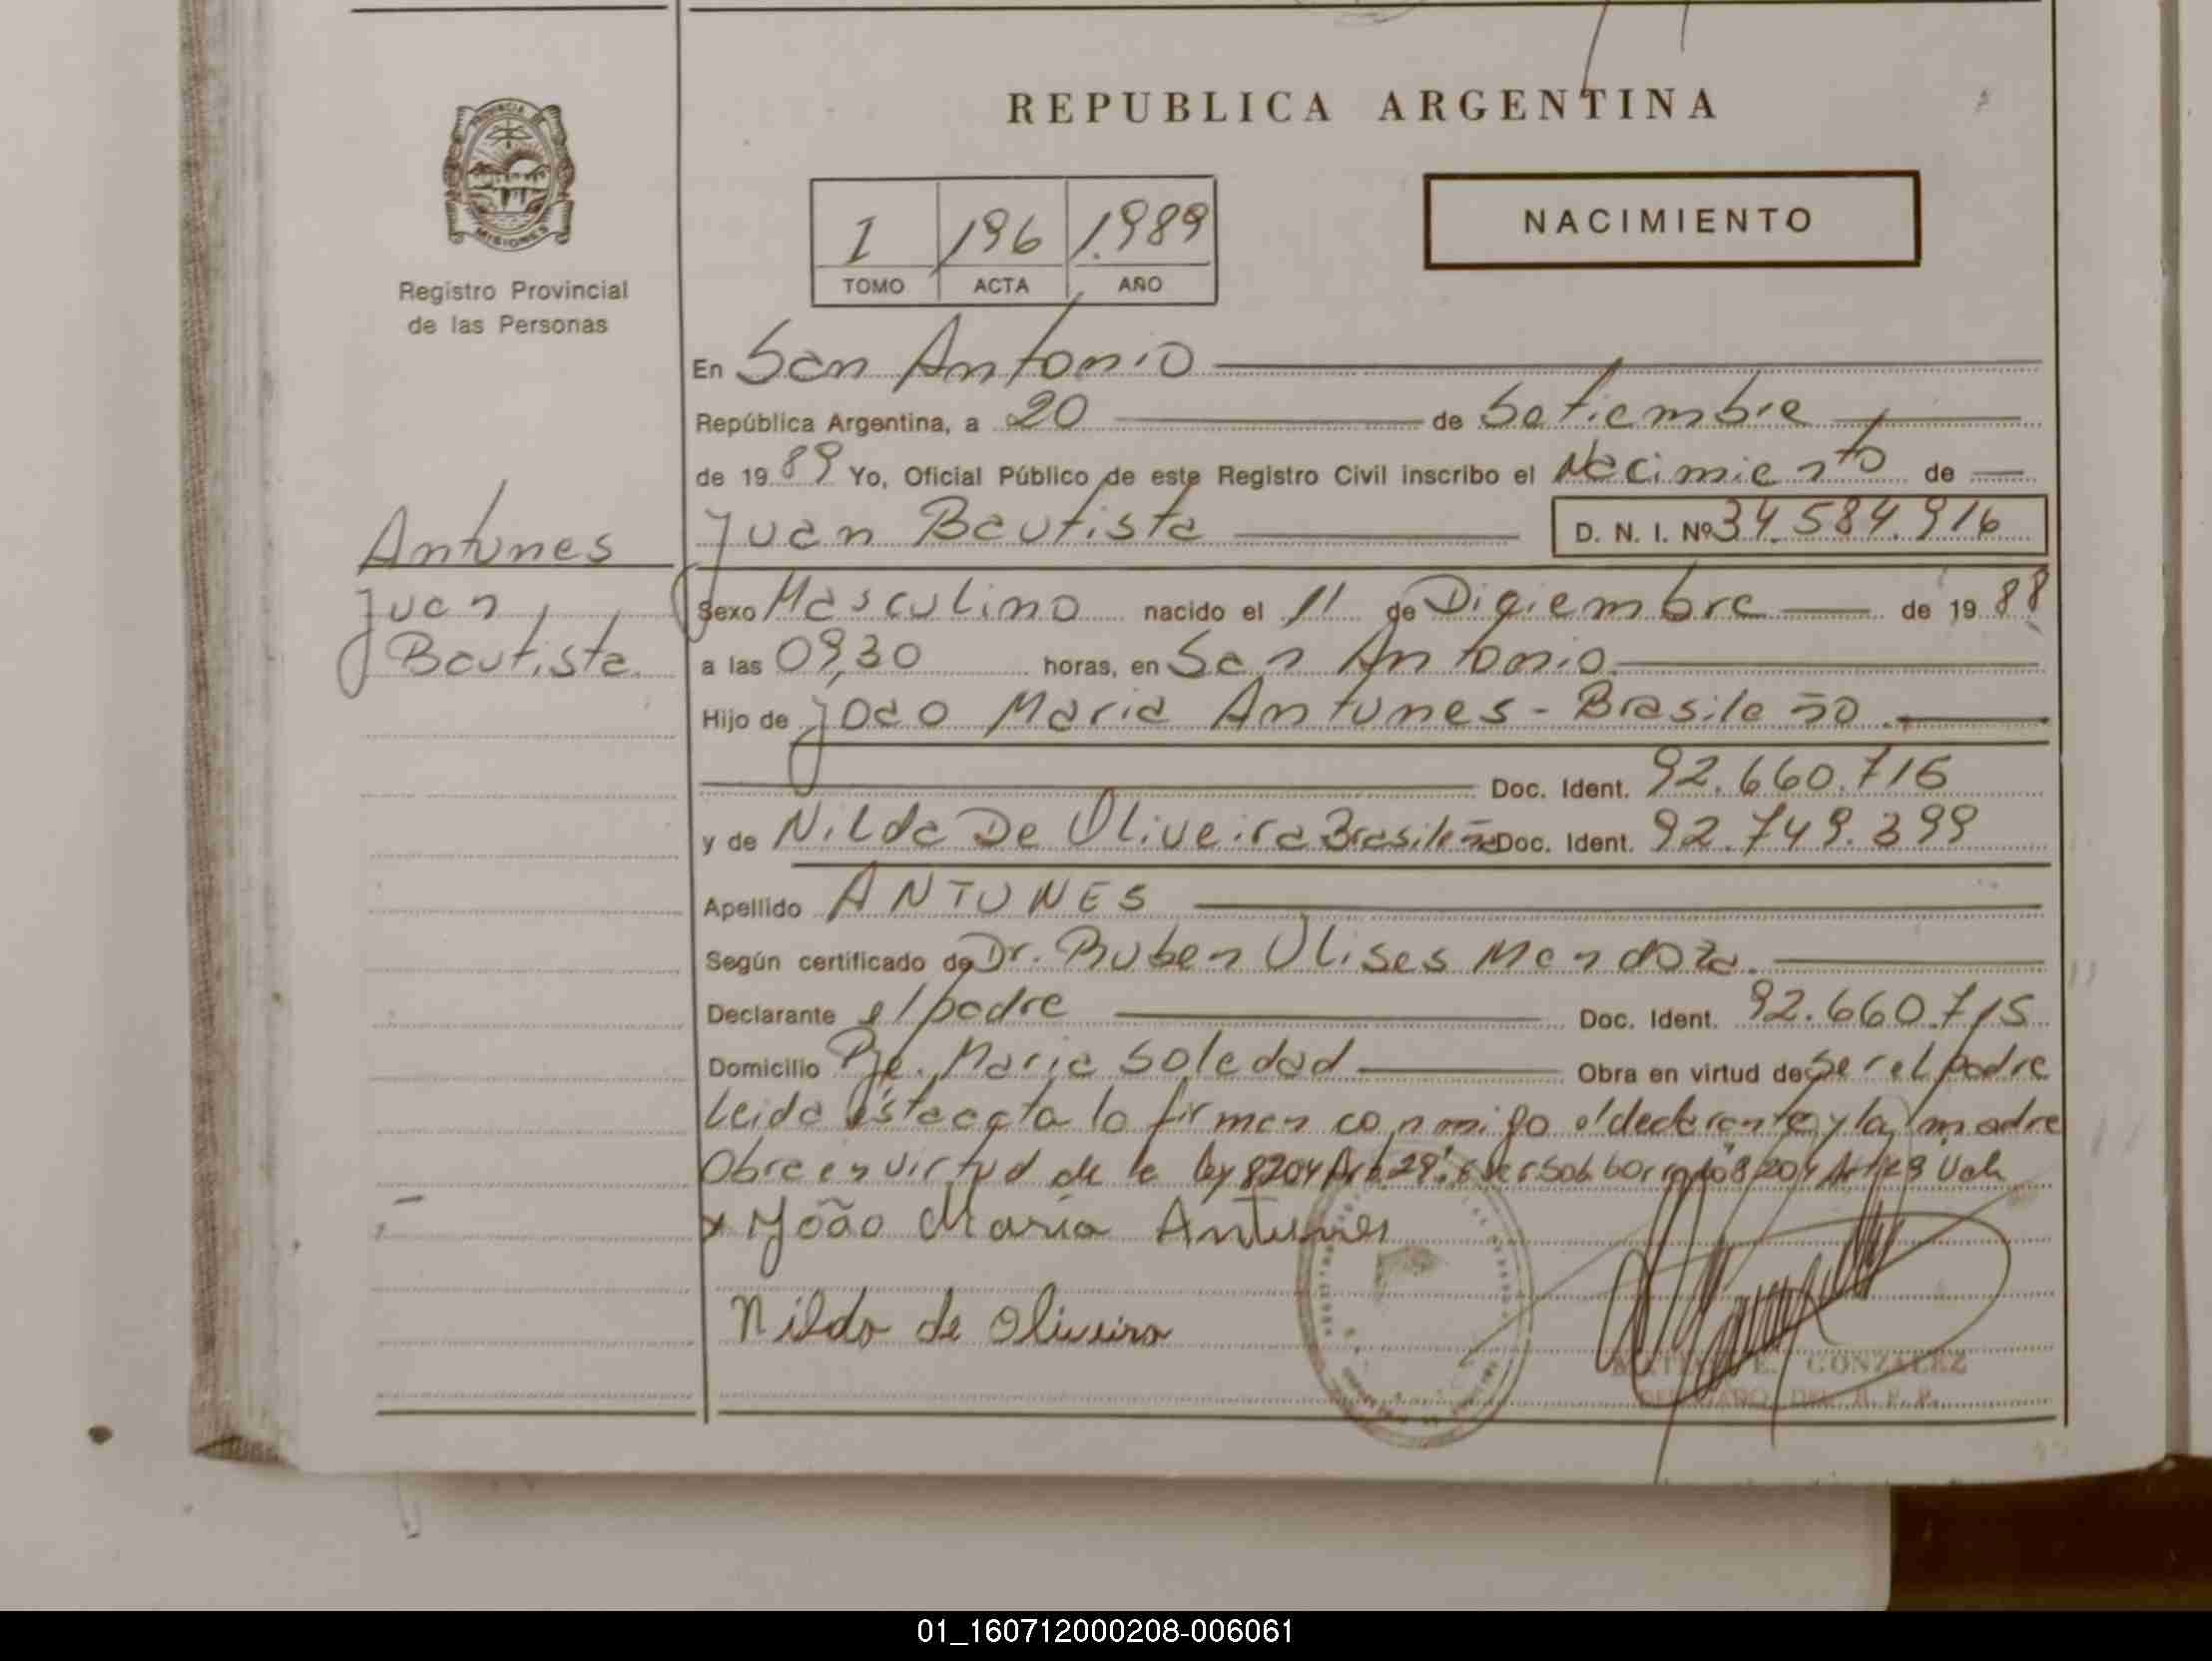 REPUBLICA ARGENTINA
PROVINCIA DE
MISIONES
Registro Provincial
de las Personas
1 196 1.989
TOMO ACTA AÑO
NACIMIENTO
En San Antonio
República Argentina, a 20 de Setiembre
de 19 89 Yo, Oficial Público de este Registro Civil inscribo el Nacimiento de
Juan Bautista D. N. I. Nº 34.584.916
Antunes
Juan
Bautista.
Sexo Masculino nacido el 11 de Diciembre de 19 88
a las 09,30 horas, en San Antonio.
Hijo de Joao Maria Antunes - Brasileño.
Doc. Ident. 92.660.715
y de Nilda De Oliveira Brasileña Doc. Ident. 92.749.399
Apellido ANTUNES
Según certificado de Dr. Ruben Ulises Mendoza.
Declarante el padre Doc. Ident. 92.660.715
Domicilio Pje. Maria Soledad Obra en virtud de Ser el padre
Leida esta acta la firman conmigo el declarante y la madre
Obra en virtud de la ley 8204 Art 29: 8204 Art 29 Vale
x João Maria Antunes
Nilda de Oliveira
E. GONZALEZ
DEL R. P. P.
01_160712000208-006061